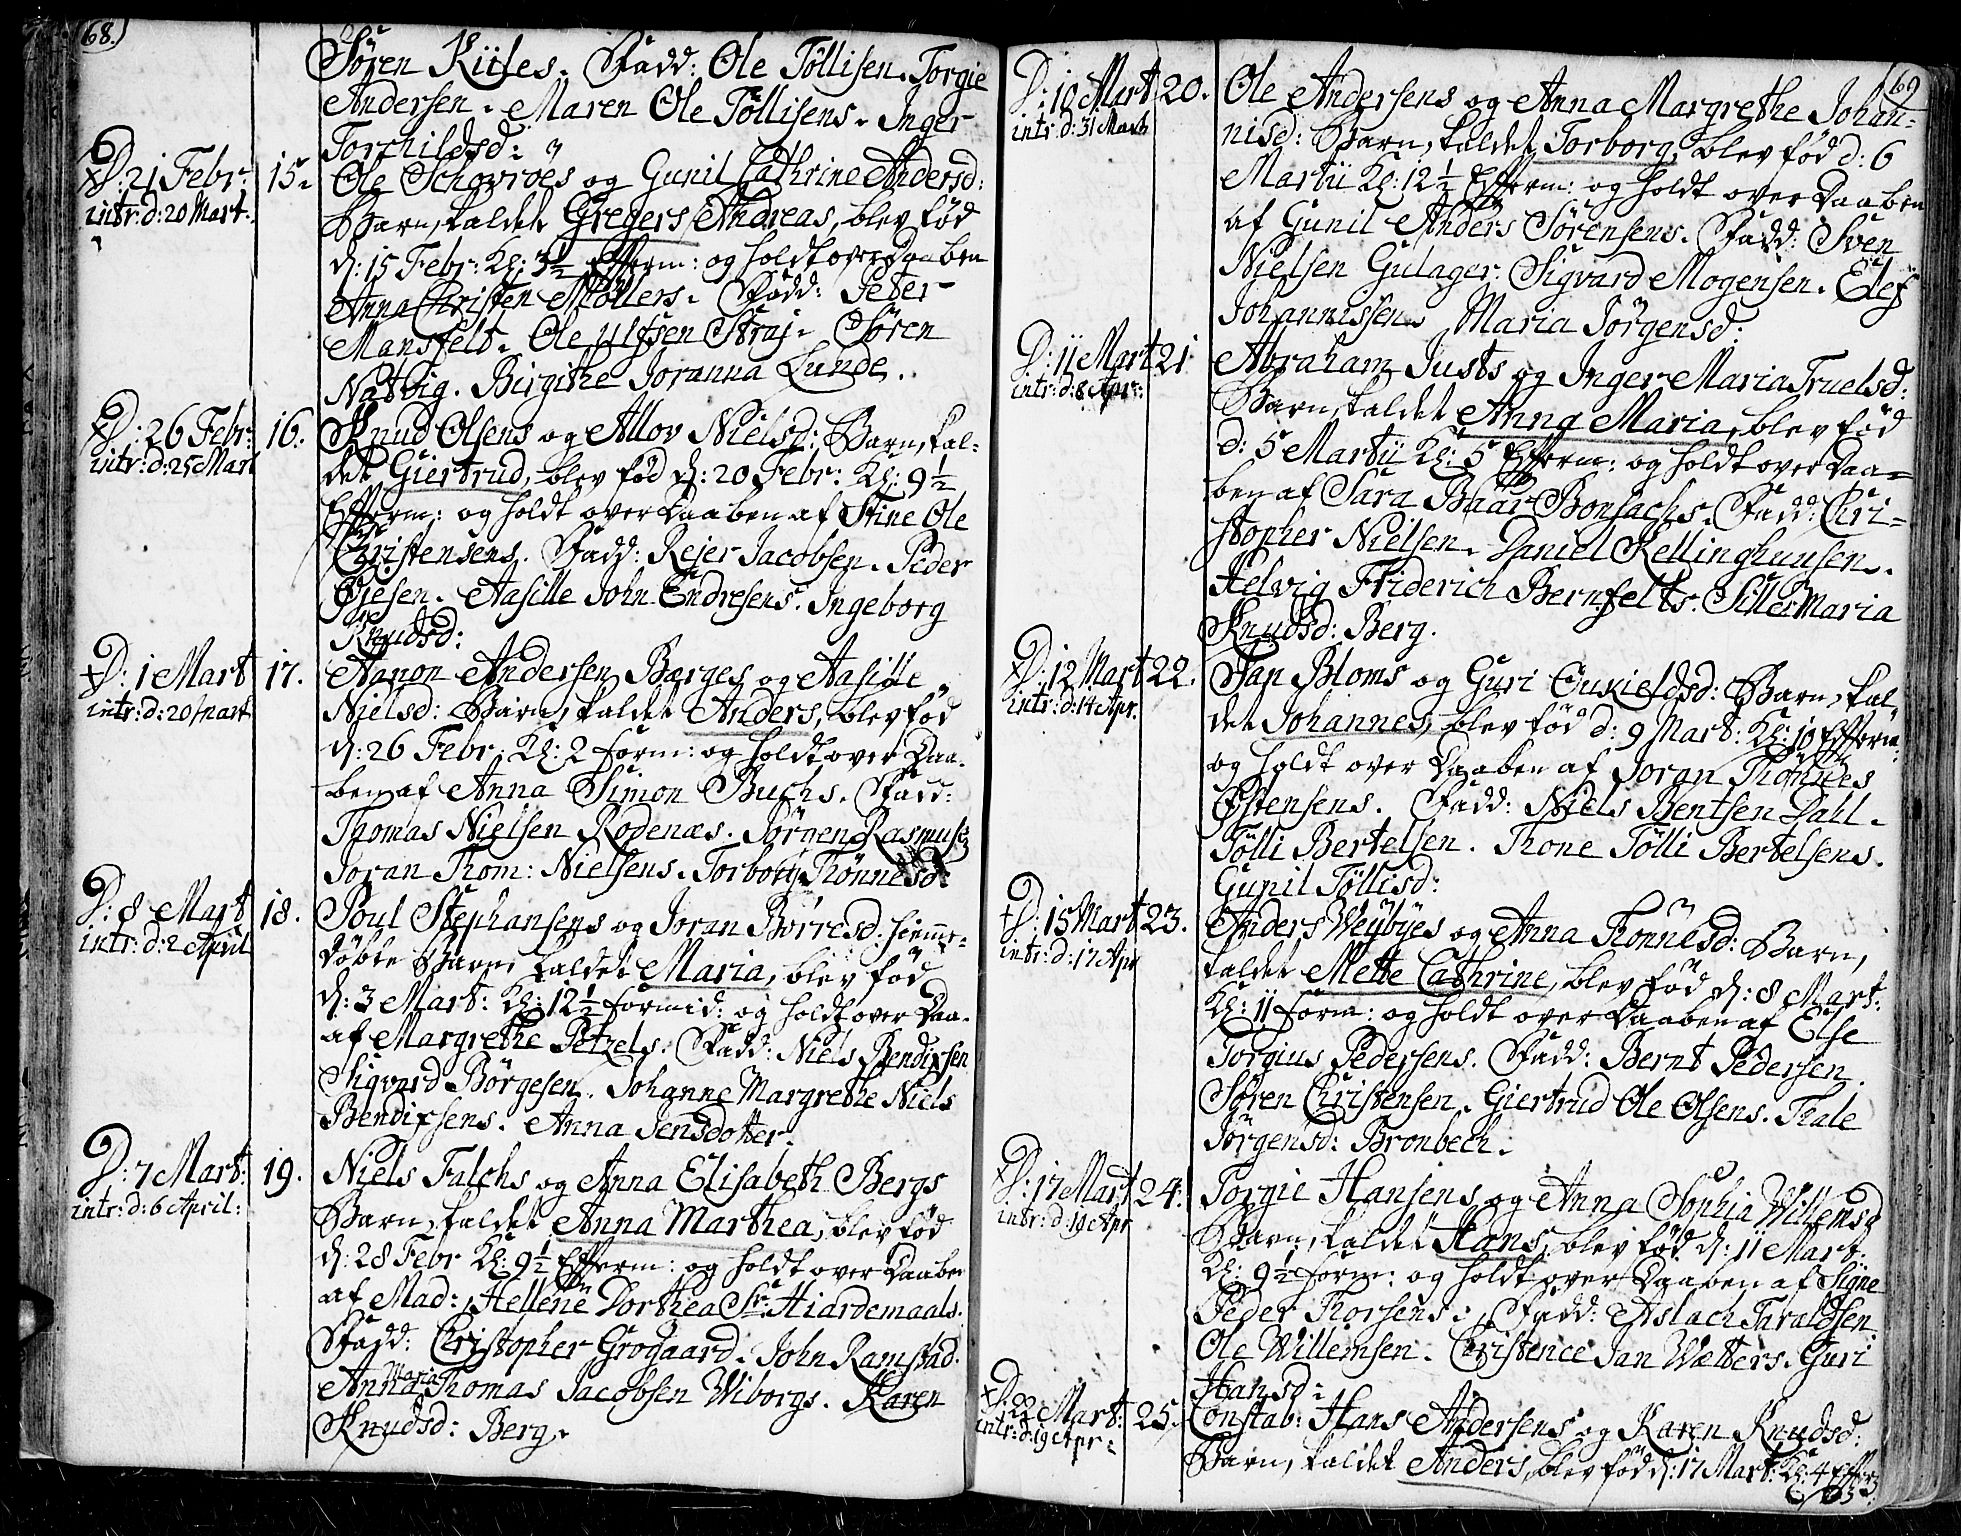 68.)
Søren Kiises. Fadd: Ole Töllisen. Torgie
Andersen. Maren Ole Töllisens. Inger
Torchildsd:
D: 21 Febr:
intr: d: 20 Mart:
15.
Ole Schovröes og Gunil Cathrine Andersd:
Barn, kaldet Gregers Andreas, blev fød
d: 15 Febr: Kl: 3½ Efferm: og holdt over Daaben
Anna Christen Möllers. Fadd: Peter
Mansfelt. Ole Ulfsen Straj. Søren
Natvig. Birgithe Joranna Lunde.
D: 26 Febr:
intr: d: 25 Mart
16.
Knud Olsens og Allov Nielsd: Barn, kal-
det Giertrud, blev fød d: 20 Febr: Kl: 9½
Efferm: og holdt over Daaben af Stine Ole
Christensens. Fadd: Rejer Jacobsen. Peder
Ojesen. Aasille John Endresens. Ingeborg
Knudsd:
D: 1 Mart
intr: d: 20 Mart
17.
Aanon Andersen Barges og Aasille
Nielsd: Barn, kaldet Anders, blev fød
d: 26 Febr: Kl: 2 form: og holdt over Daa-
ben af Anna Simon Buchs. Fadd:
Thomas Nielsen Rodenæs. Jörgen Rasmus:
Joran Thom: Nielsens. Torborg Thönnesd:
D: 8 Mart
intr: d: 2 April
18.
Poul Stephansens og Joran Börresd: hjemme-
döbte Barn, kaldet Maria, blev fød
d: 3 Mart: Kl: 12½ formid: og holdt over Daa-
af Margrethe Petzels. Fadd: Niels Bendixsen
Sigvard Börgesen. Johanne Margrethe Niels
Bendixsens. Anna Jensdotter.
D: 7 Mart:
intr: d: 6 April:
19.
Niels Falchs og Anna Elisabeth Bergs
Barn, kaldet Anna Marthea, blev fød
d: 28 Febr Kl: 9½ Efferm: og holdt over Daaben
af Mad: Hellene Dorthea Sr. Hiardemaals.
Fadd: Christopher Grogaard. John Ramstad.
Anna Maria Thomas Jacobsen Wiborgs. Karen
Knudsd: Berg.
69
D: 10 Mart
intr: d: 31 Mart
20.
Ole Andersens og Anna Margrethe Johan-
nisd: Barn, kaldet Torborg, blev fød d: 6
Martii Kl: 12½ Efferm: og holdt over Daaben
af Gunil Anders Sörensens. Fadd: Sven
Nielsen Gulager. Sigvard Mogensen. Elef
Johannissen. Maria Jörgensd:
D: 11 Mart
intr: d: 8 Apr:
21
Abraham Justs og Inger Maria Truelsd:
Barn, kaldet Anna Maria, blev fød
d: 5 Martii Kl: 5 Efferm: og holdt over Daa-
ben af Sara Baar Bonsachs. Fadd: Chri-
stopher Nielsen. Daniel Kellinghuusen.
Helvig Friderich Bernfelts. Siller Maria
Knudsd: Berg.
D: 12 Mart
intr: d: 14 Apr.
22.
Jan Bloms og Guri Ouxieldsd: Barn, kal-
det Johannes, blev fød d: 9 Mart: Kl: 10 Efferm:
og holdt over Daaben af Joran Thönnes
Östensens. Fadd: Niels Bentsen Dahl.
Tölli Bertelsen. Thone Tölli Bertelsens.
Gunil Töllisd:
D: 15 Mart
intr: d: 17 Apr
23.
Anders Weybyes og Anna Thönnesd: Barn,
kaldet Mette Cathrine, blev fød d: 8 Mart:
Kl: 11 form: og holdt over Daaben af Else
Torgius Pedersens. Fadd: Bernt Pedersen.
Søren Christensen. Giertrud Ole Olsens. Thale
Jörgensd: Bronbech.
D: 17 Mart
intr: d: 19 Apr
24.
Torgie Hansens og Anna Sophia Willemsd
Barn, kaldet Hans, blev fød d: 11 Mart:
Kl: 9½ form: og holdt over Daaben af Signe
Peder Thorsens. Fadd: Aslach Taraldsen
Ole Willemsen. Christence Jan Wetters. Guri
Hansd:
D: 22 Mart:
intr: d: 19 Apr:
25.
Constab: Hans Andersens og Karen Knudsd:
Barn, kaldet Anders, blev fød d: 17 Mart: Kl: 4 Efferm
og